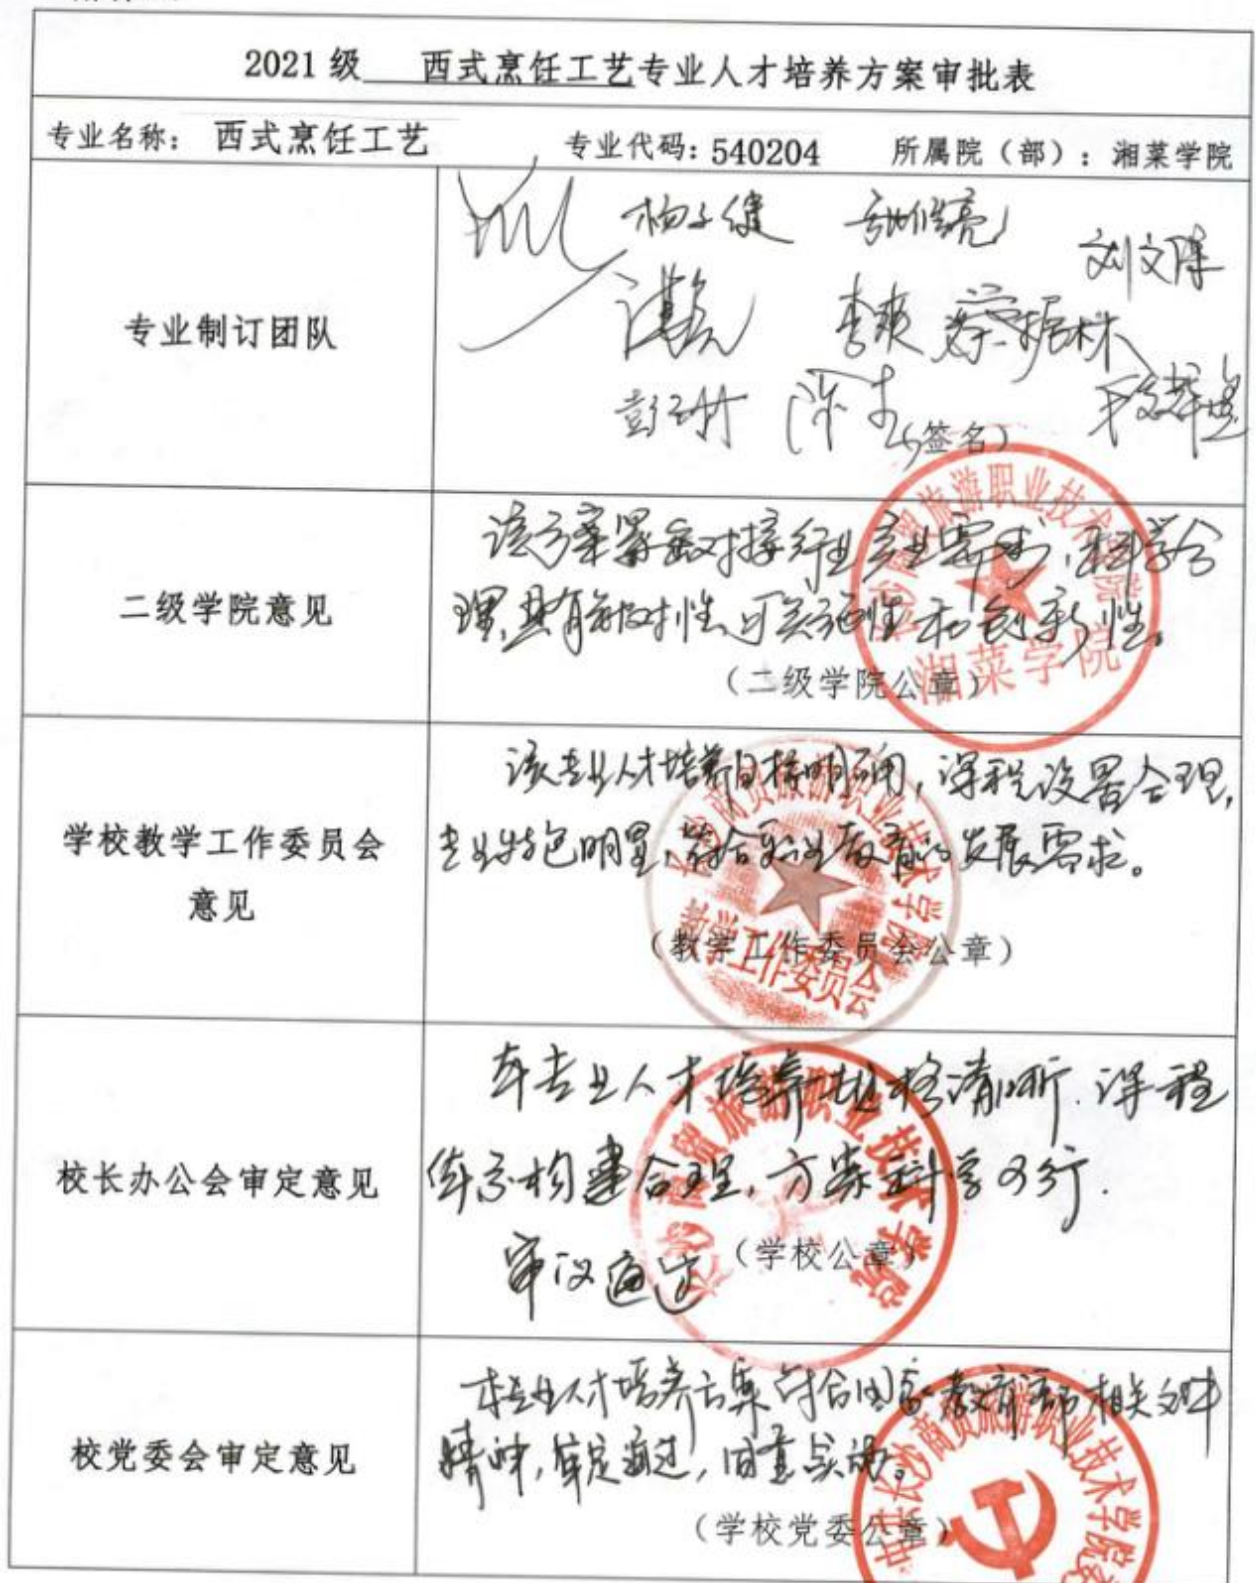 2021级 西式烹饪工艺专业人才培养方案审批表
专业名称： 西式烹饪工艺 专业代码：540204 所属院（部）：湘菜学院
专业制订团队
杨子健
李爽 蔡振林
彭珊
（签名）
二级学院意见
该方案紧密对接行业产业需求，科学合
理，具有针对性、可实施性和创新性。
（二级学院公章）
长沙商贸旅游职业技术学院
湘菜学院
学校教学工作委员会
意见
该专业人才培养目标明确，课程设置合理，
专业特色明显，符合职业教育的发展需求。
（教学工作委员会公章）
长沙商贸旅游职业技术学院
教学工作委员会
校长办公会审定意见
本专业人才培养规格清晰，课程
体系构建合理，方案科学可行.
审议通过
（学校公章）
长沙商贸旅游职业技术学院
校党委会审定意见
本专业人才培养方案符合国家教育部相关文件
精神，审定通过，同意实施。
（学校党委公章）
中共长沙商贸旅游职业技术学院委